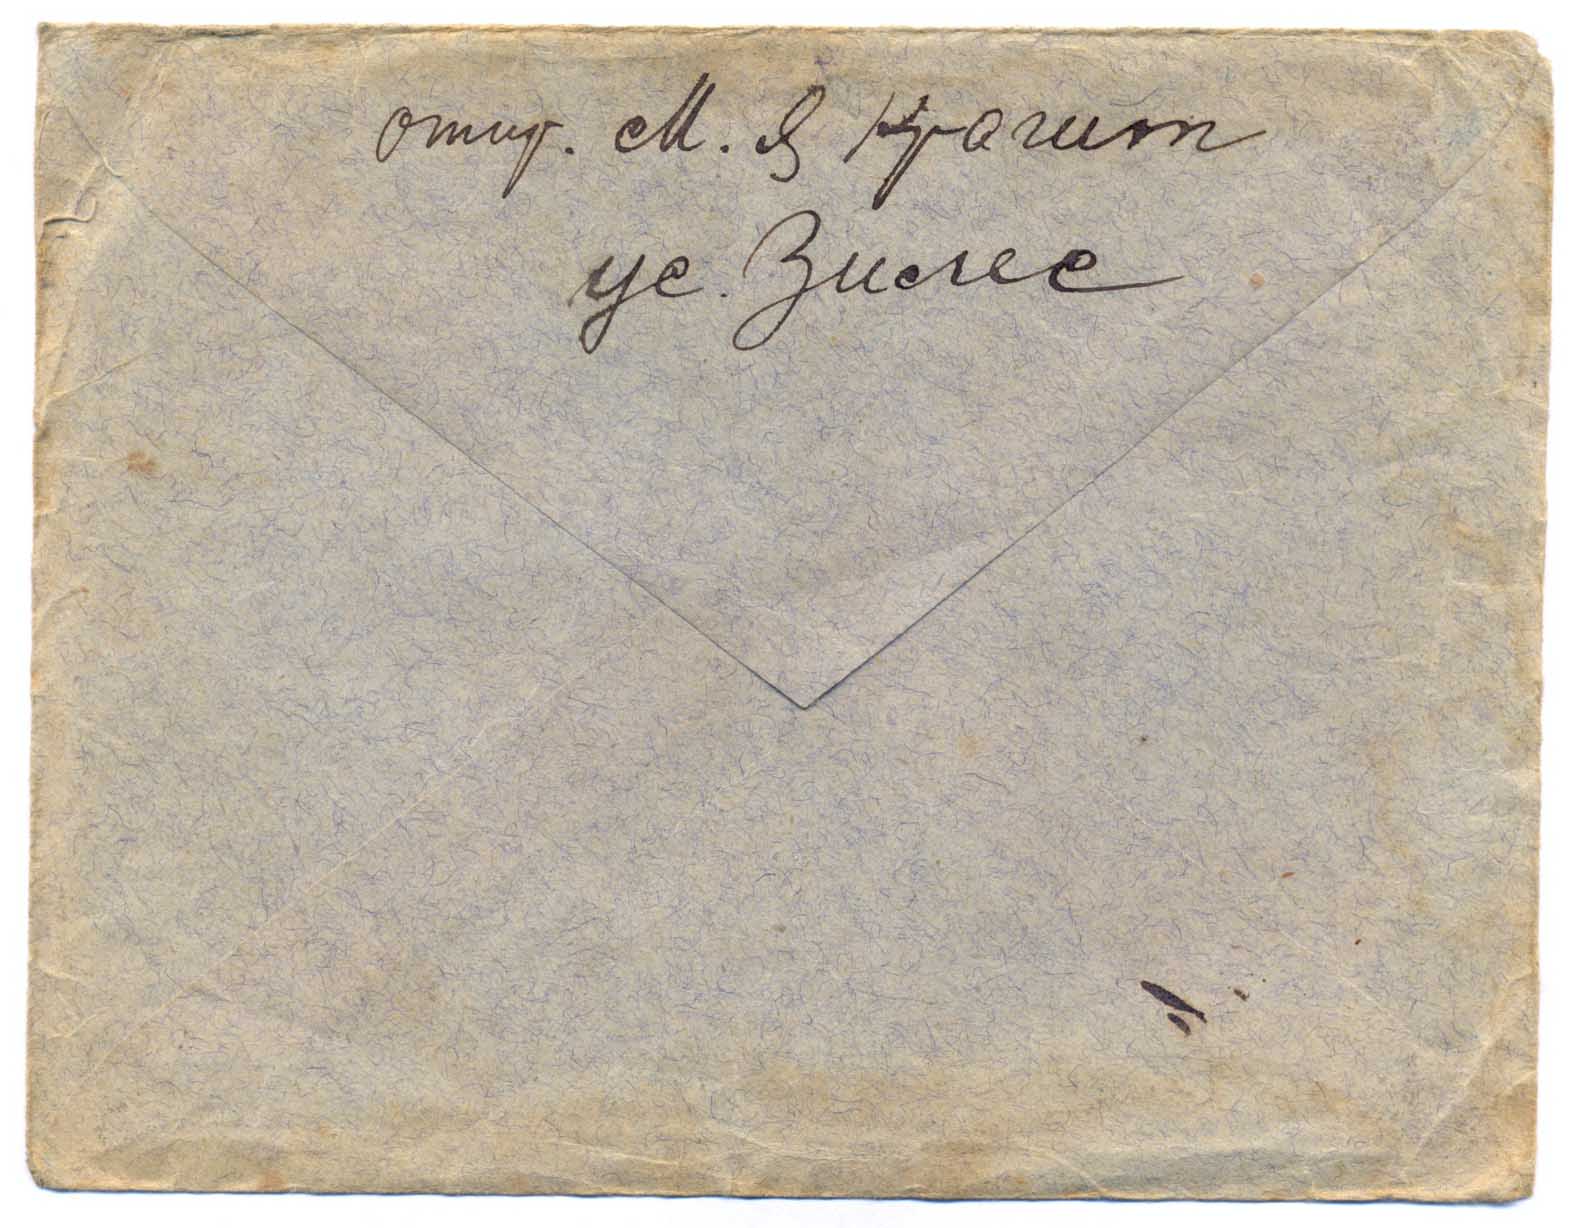 отпр. М. Я Крагит
ус. Зилге